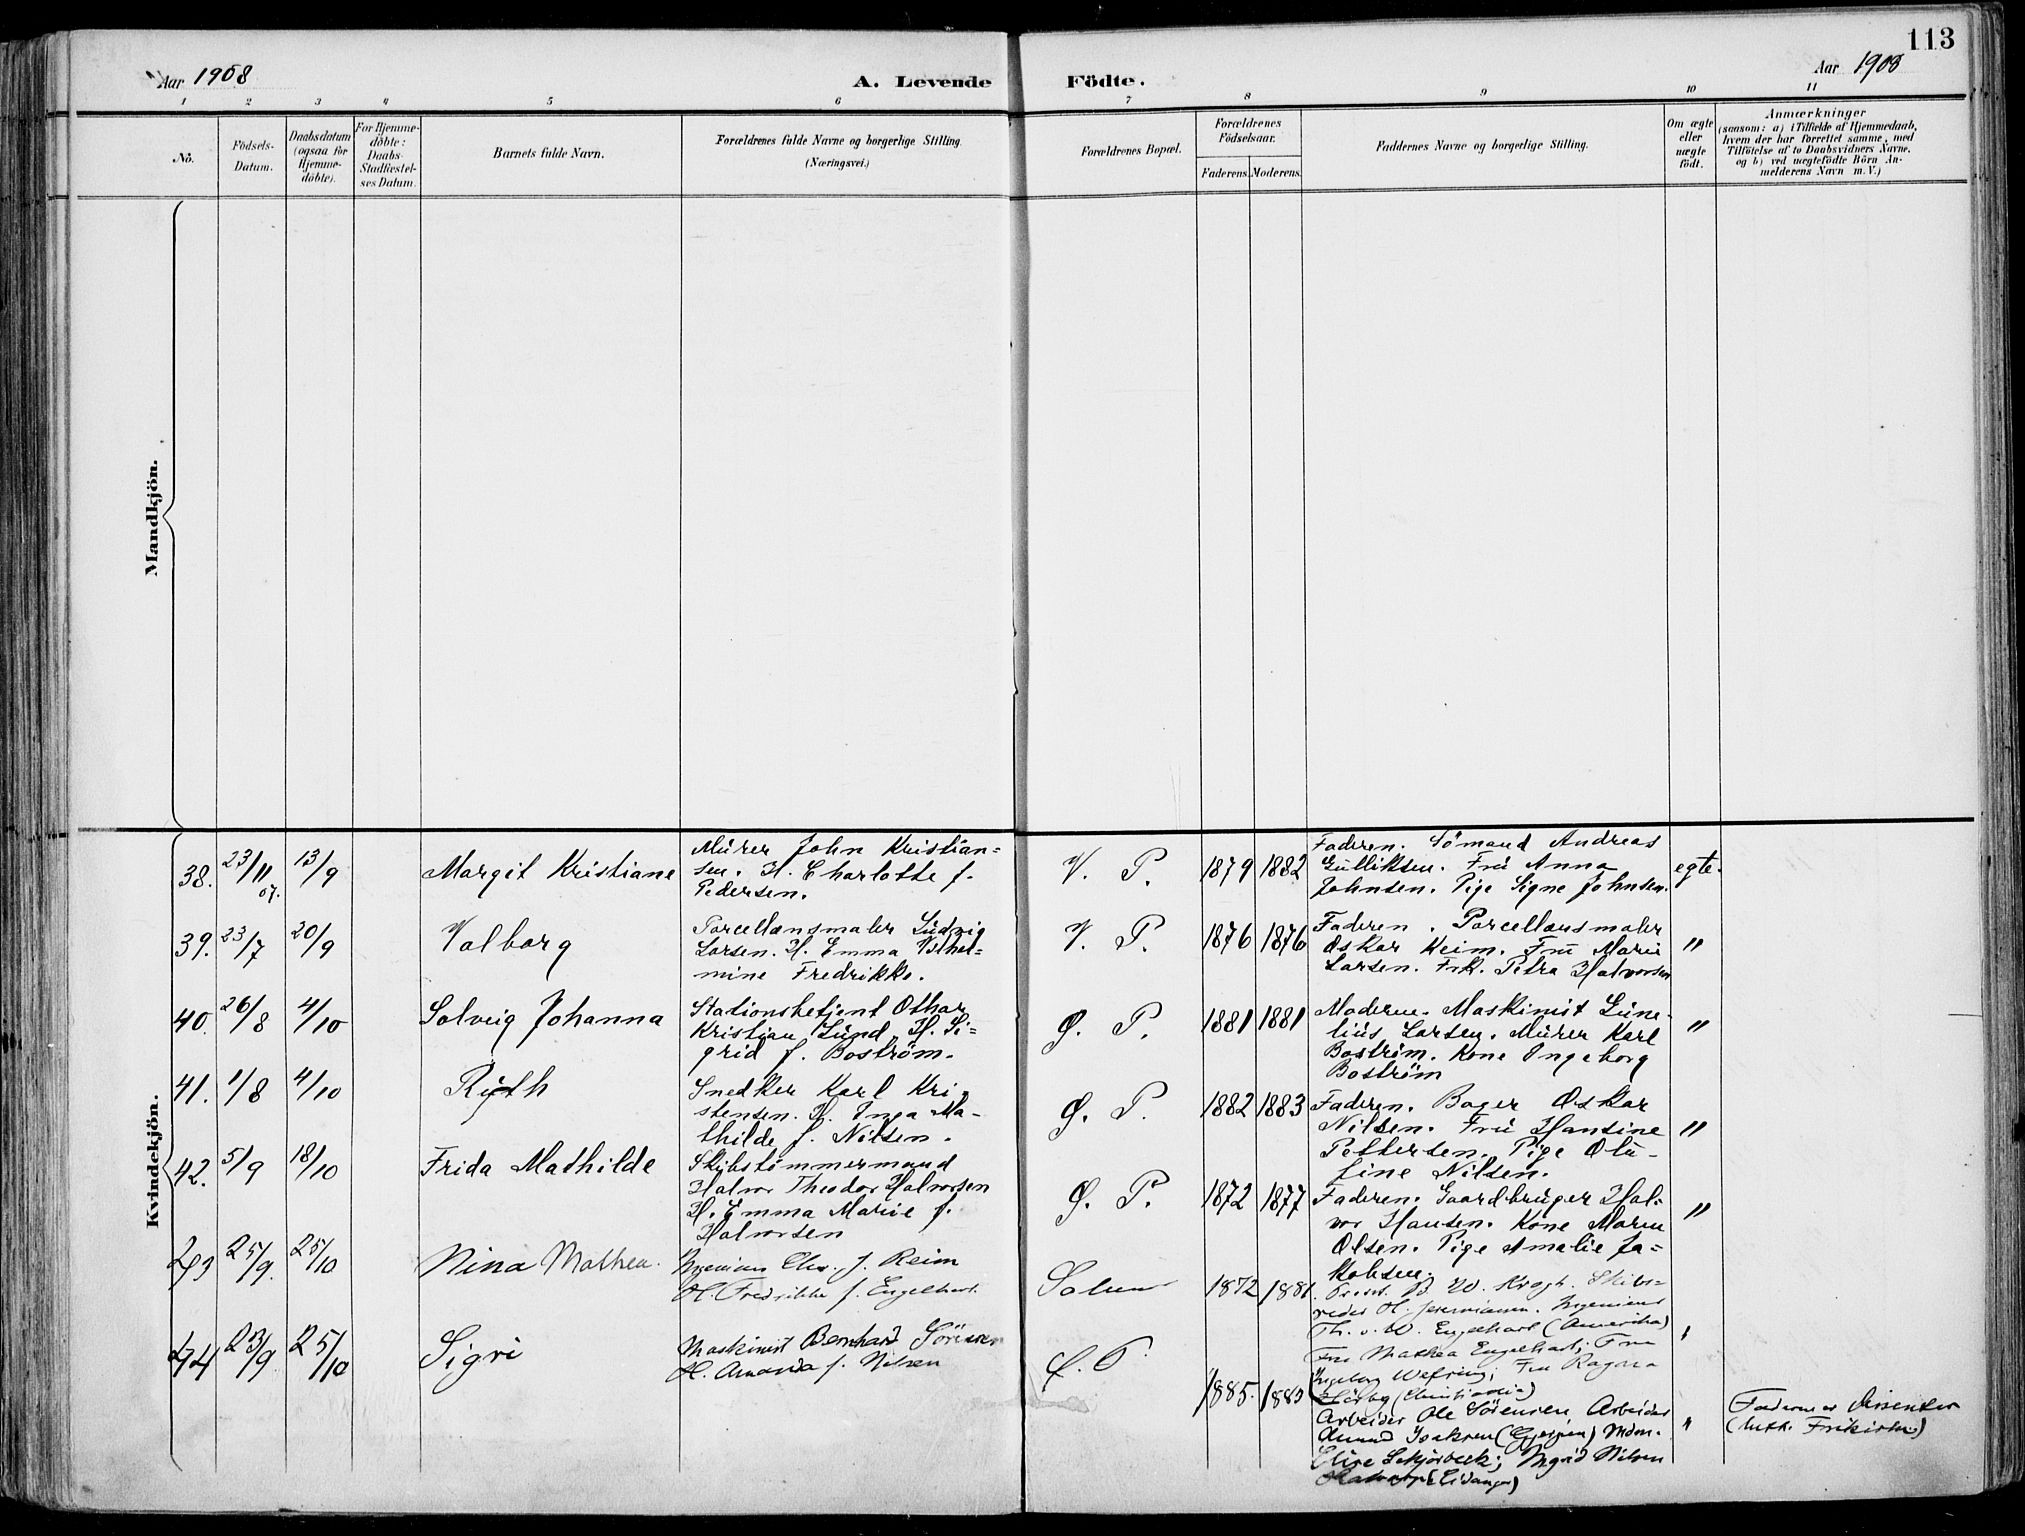 113
Aar 1908
A. Levende Födte.
Aar 1908
1 2 3 4 5 6 7 8 9 10 11
No.
Födsels-
Datum.
Daabsdatum
(ogsaa for
Hjemme-
döbte).
For Hjemme-
döbte:
Daabs-
Stadfæstel-
ses Datum.
Barnets fulde Navn.
Forældrenes fulde Navne og borgerlige Stilling.
(Næringsvei.)
Forældrenes Bopæl.
Forældrenes
Födselsaar.
Faderens. Moderens.
Faddernes Navne og borgerlige Stilling.
Om ægte
eller
uægte
födt.
Anmærkninger
(saasom: a) i Tilfælde af Hjemmedaab,
hvem der har forrettet samme, med
Tilföielse af to Daabsvidners Navne,
og b) ved uægtefödte Börn An-
melderens Navn m. V.)
Mandkjön.
Kvindekjön.
38. 23/11 07. 13/9
Margit Kristiane
Murer John Kristian-
sen. H. Charlotte f.
Pedersen.
V. P.
1879 1882
Faderen. Sömand Andreas
Gulliksen. Fru Anna
Johnsen. Pige Signe Johnsen.
egte.
39. 23/7 20/9
Valborg
Porcellænsmaler Ludvig
Larsen. H. Emma Vilhel-
mine Fredrikke.
V. P.
1876 1876
Faderen. Porcellænsmaler
Oskar Keim. Fru Marie
Larsen. Frk. Petra Halvorsen
"
40. 26/8 4/10
Solveig Johanna
Stationsbetjent Othar
Kristian Lund. H. Si-
grid f. Boström.
Ø. P.
1881 1881
Moderen. Maskinist Lune-
lius Larsen. Murer Karl
Boström. Kone Ingeborg
Boström
"
41. 1/8 4/10
Ruth
Snedker Karl Kri-
stensen. H. Inga Ma-
thilde f. Nilsen.
Ø. P.
1882 1883
Faderen. Bager Oskar
Nilsen. Fru Hansine
Pettersen. Pige Olu-
fine Nilsen.
"
42. 5/9 18/10
Frida Mathilde
Skibstömmermand
Halvor Theodor Halvorsen
H. Emma Marie f.
Halvorsen
Ø. P.
1872 1877
Faderen. Gaardbruger Hal-
vor Hansen. Kone Maren
Olsen. Pige Amalie Ja-
kobsen.
"
43 25/9. 25/10
Nina Mathea.
Ingeniør Chr. J. Reim
H. Fredrikke f. Engelhart.
Solum
1872 1881
B. W. Krogh. Skibs-
reder H. Jeremiassen. Ingeniør
Th. v. W. Engelhart (Amerika)
Fru Mathea Engelhart; Fru
Ingeborg Wefring; Fru Ragna
(Christiania)
"
44 23/9. 25/10
Sigri
Maskinist Bernhard Sörensen
H. Amanda f. Nilsen
Ø. P.
1885. 1883
Arbeider Ole Sörensen, Arbeider
Amund Isaksen (Gjerpen) Mdm.
Elise Skjörbeck; Ingrid Nilsen
(Eidanger)
"
Faderen er Dissenter
(luth. Frikirke)